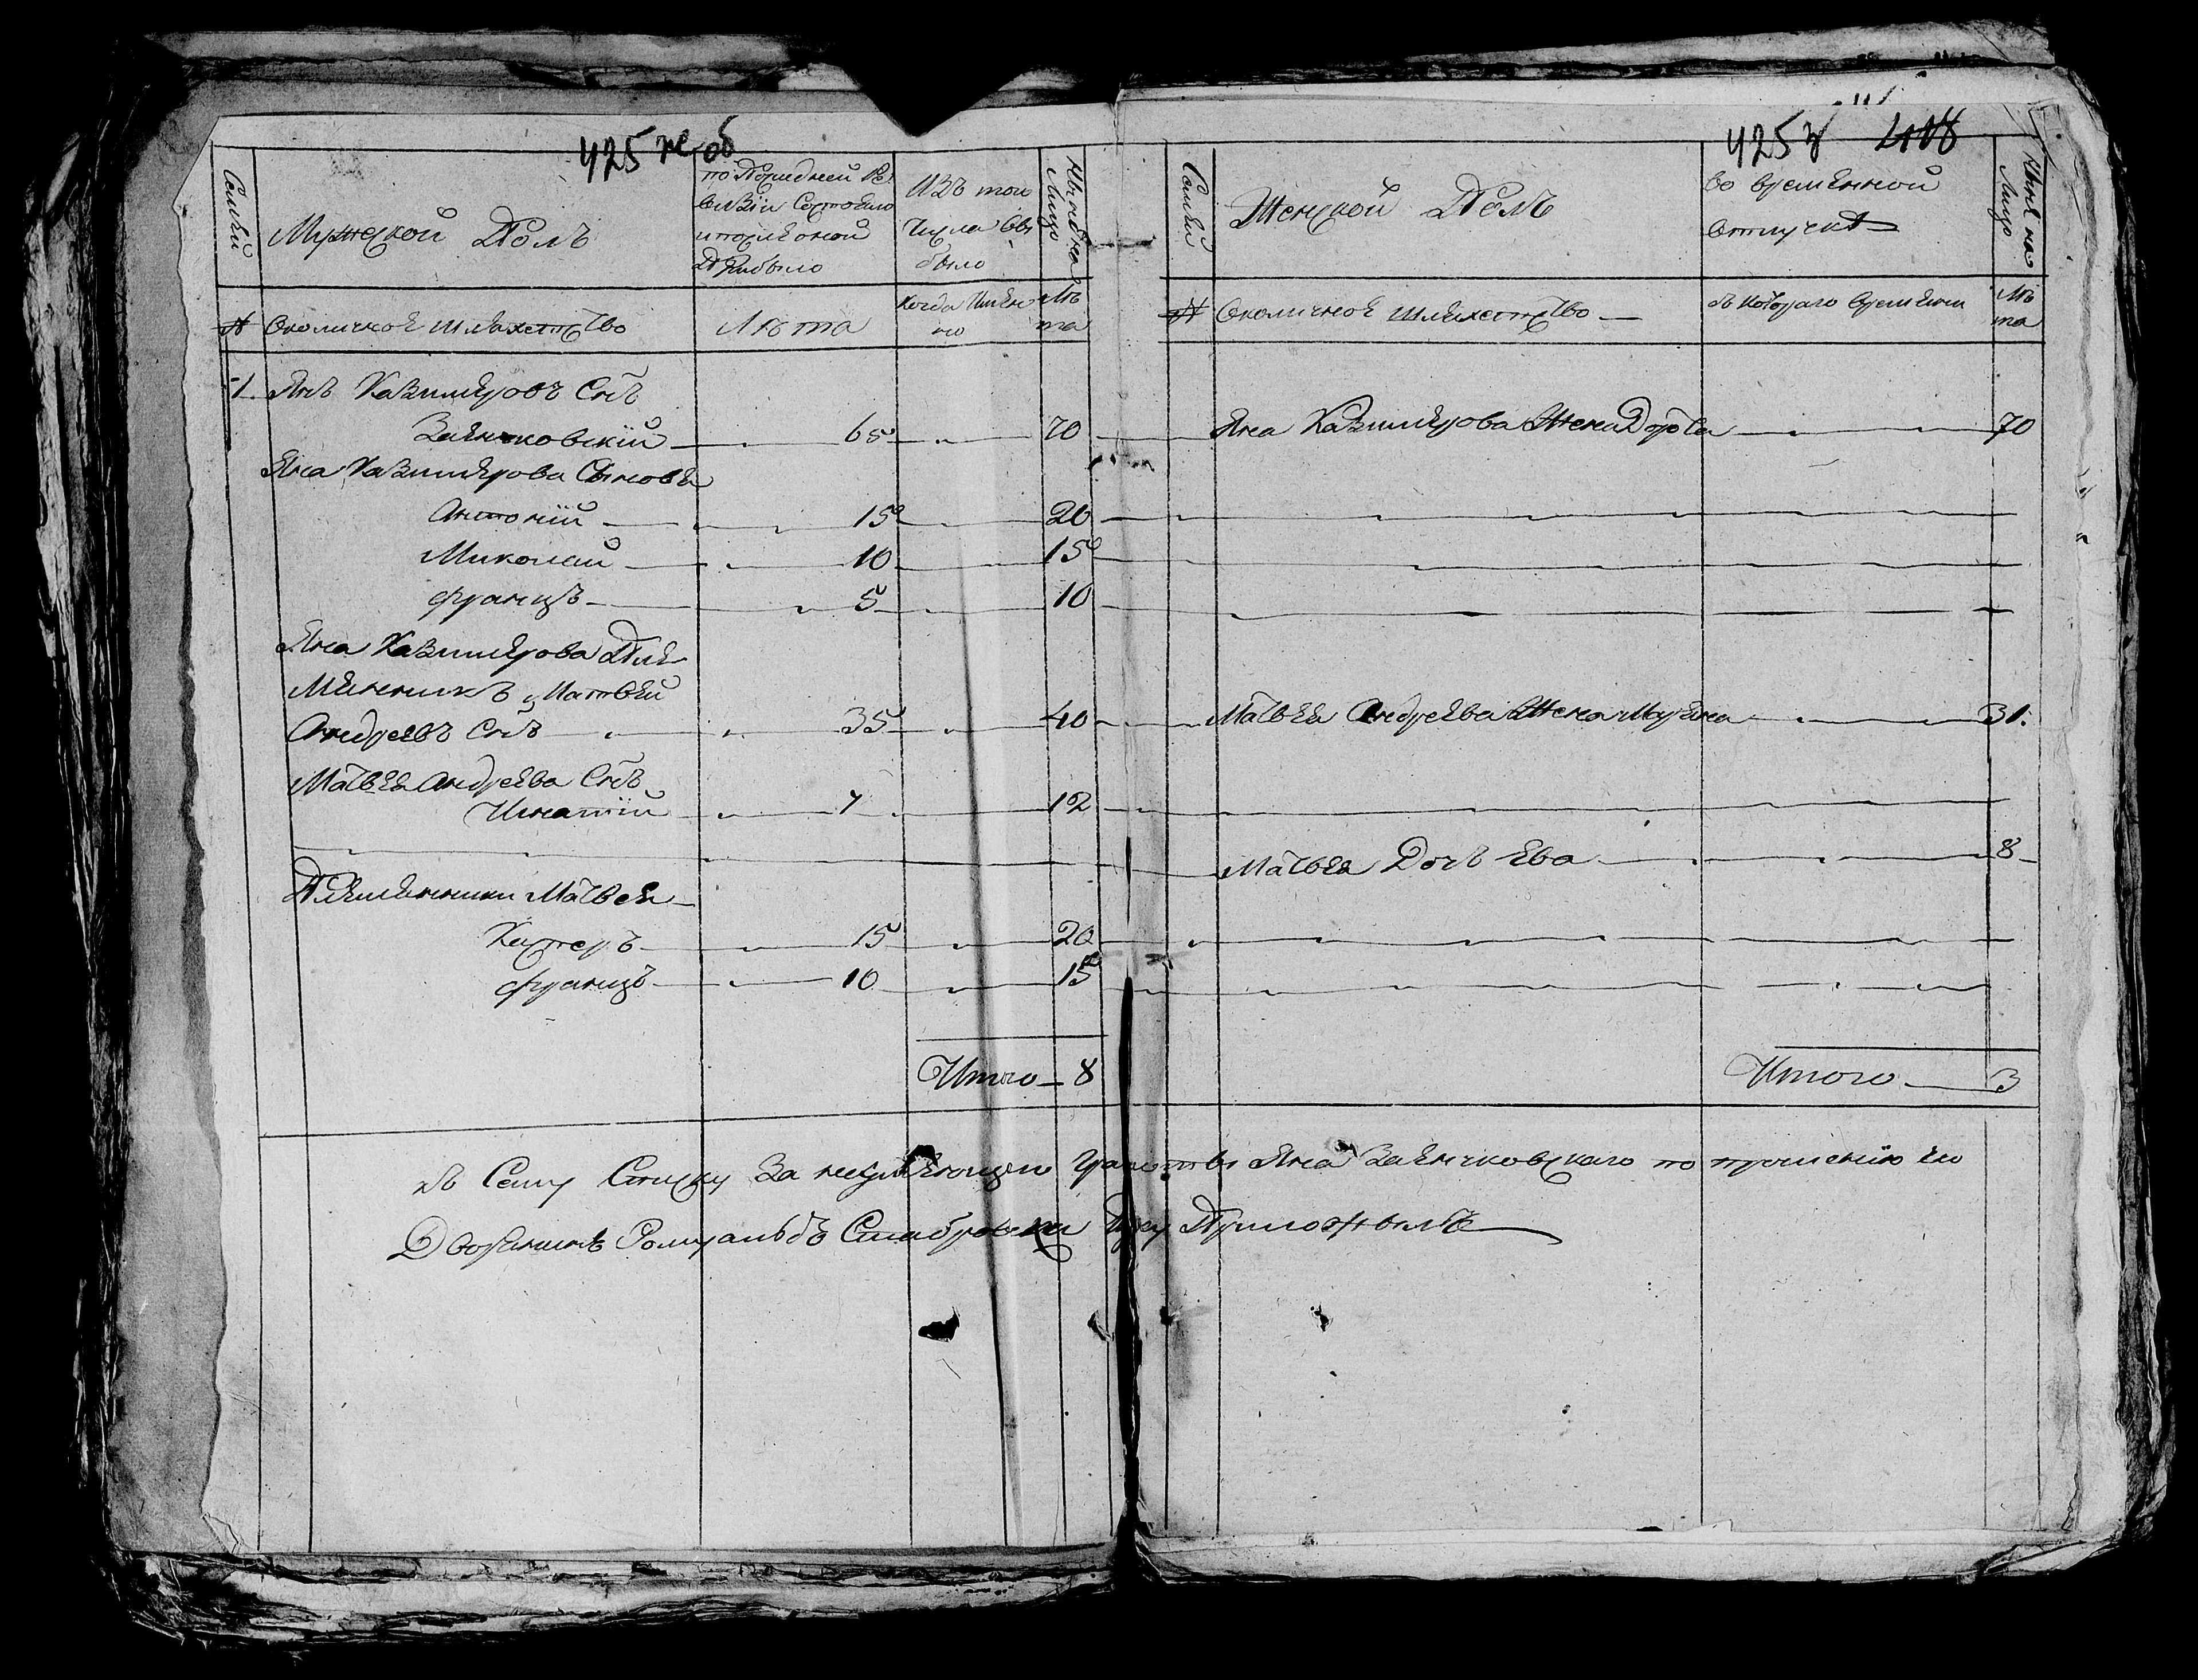 425 же об
Семьи
Мужеской Полъ
по Последней Ре
визіи Состояло
и после оной
Прибыло
Изъ того
Числа Вы
было
Ныне на
Лицо
№ Околичное шляхетство
Лета
Когда Имен
но
Ле
та
1 Янъ Казимеровъ Снъ
Заенчковскій 65 70
Яна Казимерова Сыновя
Антоній 15 20
Миколай 10 15
Францъ 5 10
Яна Казимерова Пле
мянникъ Матвей
Андреевъ Снъ 35 40
Матвея Андреева Снъ
Игнатій 7 12
Племянники Матвея
Касперъ 15 20
Францъ 10 15
Итого 8
425 з 418
Семьи
Женской Полъ
Во временной
Отлучке
Ныне на
Лицо
№ Околичное шляхетство
Съ которого времени
Ле
та
Яна Казимерова Жена Дорота 70
Матвея Андреева Жена Марьяна 31.
Матвея Дочь Ева 8
Итого 3
Къ Сему Списку За неумеющаго грамоты Яна Заенчковскаго по прошенію его
Дворянинъ Ромуальдъ Руку Приложилъ